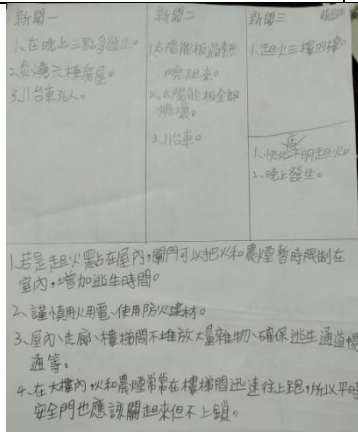 新聞一
1、在晚上三點多發生。
2、炎燒六棟房屋。
3、11台車36人。
新聞二
1、太陽能板
燒起來。
2、太陽能板全部
燒壞。
3、11台車。
新聞三
1、起火三樓四樓。
1、快
不明起火。
2、晚上發生。
1、若是起火點在屋內,關門可以把火和濃煙暫時限制在
室內,增加逃生時間。
2、謹慎用火用電、使用防火建材。
3、屋內、走廊、樓梯間不堆放大量雜物、確保逃生通道暢
通等。
4、在大樓內,火和濃煙常常在樓梯間迅速往上跑,所以平時
安全門也應該關起來但不上鎖。